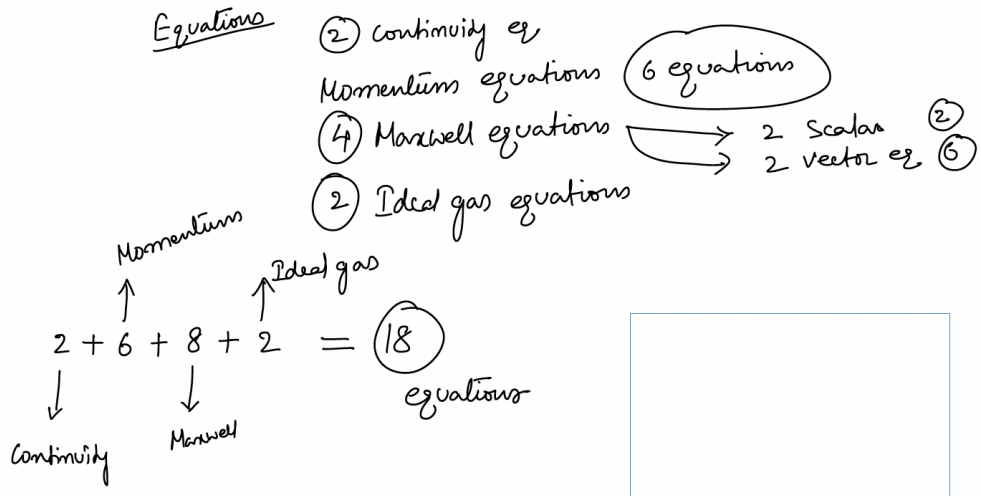 Equations
② Continuity eq
Momentum equations 6 equations
④ Maxwell equations → 2 Scalar ②
→ 2 vector eq ⑥
② Ideal gas equations
Momentum
Ideal gas
2 + 6 + 8 + 2 = 18
equations
Continuity
Maxwell